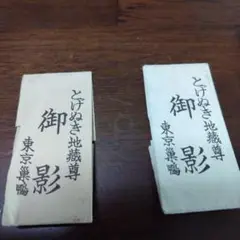 とげぬき地蔵尊
御影
東京巣鴨
とげぬき地蔵尊
御影
東京巣鴨